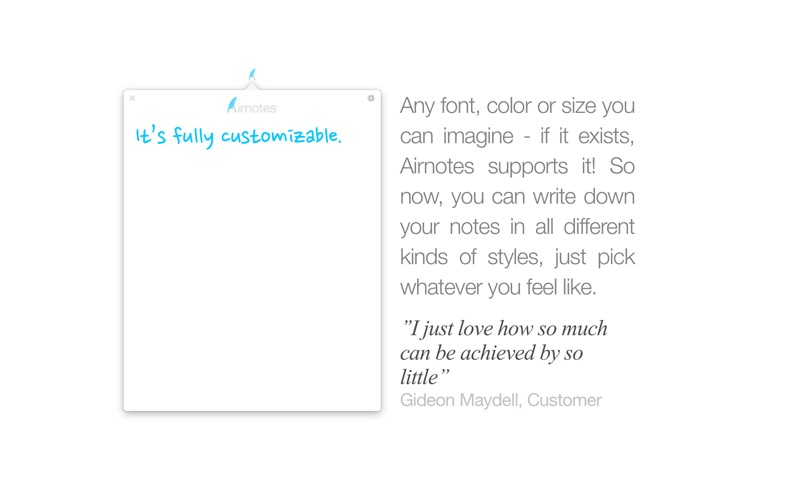 Airnotes
It's fully customizable.
Any font, color or size you
can imagine - if it exists,
Airnotes supports it! So
now, you can write down
your notes in all different
kinds of styles, just pick
whatever you feel like.
”I just love how so much
can be achieved by so
little”
Gideon Maydell, Customer